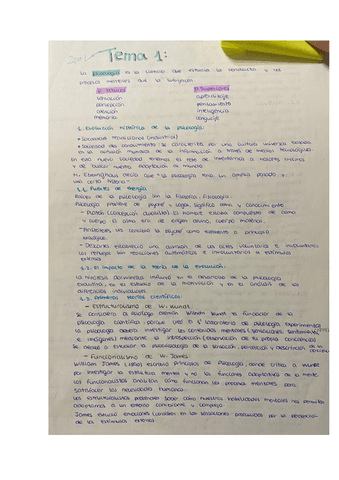 Tema 1:
La psicología es la ciencia que estudia la conducta y los
procesos mentales que la subyacen.
P. Básicos P. Superiores
sensación aprendizaje
percepción pensamiento
atención inteligencia
memoria lenguaje
1. Evolución histórica de la psicología:
• Sociedades tradicionales (industrial)
• Sociedad del conocimiento: se caracteriza por una cultura universal basada
en la difusión mundial de la información a través de medios tecnológicos
En esta nueva sociedad tenemos el reto de inventarnos a nosotros mismos
y de buscar nuestra adaptación al mundo.
H. Ebbinghaus decía que "la psicología tiene un amplio pasado y
una corta historia"
1.1. Fuentes de energía
Raíces de la psicología son la filosofía y fisiología.
Psicología proviene de psyque y logos, significa alma y conocimiento
- Platón (concepción dualista) El hombre estaba compuesto de alma
y cuerpo. El alma era de origen divino, cuerpo material.
- Aristóteles
biológica.
- Descartes estableció una división de los actos voluntarios e involuntarios
los reflejos son reacciones automáticas e involuntarias a estímulos
externos.
1.2. El impacto de la teoría de la evolución.
La herencia darwinista influyó en el desarrollo de la psicología
evolutiva, en el estudio de la motivación y en el análisis de las
diferencias individuales.
1.3. Primeras teorías científicas:
- Estructuralismo de W. Wundt
Se considera al fisiólogo alemán William Wundt el fundador de la
psicología científica porque creó el 1º laboratorio de psicología experimental
la psicología debería investigar los contenidos mentales (sensaciones, sentimientos
e imágenes) mediante la introspección (observación de la propia conciencia)
Se dedicó a estudiar la psicofisiología de la sensación, percepción y descripción de la
conciencia
- Funcionalismo de W. James
William James (1890) escribió principios de psicología, donde critica a Wundt
por investigar la estructura mental y no las funciones adaptativas de la mente
Los funcionalistas analizan cómo funcionan los procesos mentales para
satisfacer las necesidades humanas.
Los estructuralistas pretenden saber cómo nuestras habilidades mentales nos permiten
adaptarnos a un entorno cambiante y complejo.
James estudió emociones (cambios en las sensaciones producidas por la percepción
de los estímulos externos